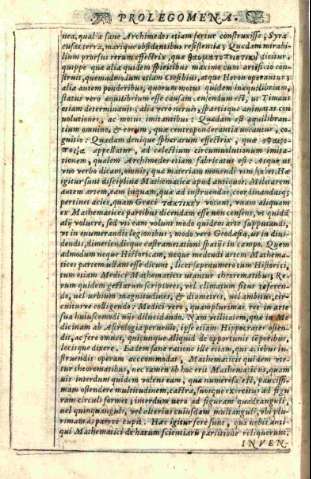 PROLEGOMENA.
nea, qualia sane Archimedes etiam feciße conscribitur, Syra
cusas terra, marique obsidentibus resistentia; Quædam mirabi-
lium prorsus rerum effectrix, quæ dicitur:
quippe quæ alia quidem spiritibus maxime cum artificio con-
struit, quemadmodum etiam Ctesibius, atque Heron operantur;
alia autem ponderibus, quorum motus quidem inæquilibrium,
status vero æquilibrium esse causam censendum est, ut Timæus
etiam determinauit; alia vero neruis, spartisque animatas con
uolutiones, ac motus imitantibus: Quædam est æquilibran-
tium omnino, & eorum, quæ centroponderantia vocantur, co-
gnitio: Quædam denique sphærarum effectrix, quæ
appellatur, ad cælestium circumuolutionum imita-
tionem, qualem Archimedes etiam fabricatus est: Atque ut
vno verbo dicam, omnis, quæ materiam mouendi vim habet. Hæ
igitur sunt disciplinæ Mathematicæ apud antiquos. Militarem
autem artem, eam inquam, quæ ad instruendas, coordinandasque
pertinet acies, quam Græci vocant, vnam aliquam
ex Mathematicæ partibus dicendam esse non censent, vt quidam
alij voluere, sed vti eam volunt modo quidem arte supputandi,
vt in enumerandis legionibus; modo vero Geodæsia, vt in diui-
dendis, dimetiendisque castrametationis spatijs in campo. Quem
admodum neque Historicam, neque medendi artem Mathema-
tices partem vllam esse dicunt, licet sæpenumero cum Historici,
tum etiam Medici Mathematicis vtantur theorematibus; Re-
rum quidem gestarum scriptores, vel climatum situs referen-
do, vel vrbium magnitudines, & dimetientes, vel ambitus, cir-
cuitusve colligendo: Medici vero, quamplurimas res in arte
sua huiuscemodi vijs dilucidando. Nam vtilitatem, quæ in Me
dicinam ab Astrologia peruenit, ipse etiam Hippocrates osten-
dit, ac fere omnes, quicunque aliquid de opportunis temporibus,
locisque dixere. Eadem sane ratione ille etiam, qui aciebus in-
struendis operam accommodat, Mathematicis quidem vte-
tur theorematibus, nec tamen ob hoc erit Mathematicus, quam
uis interdum quidem volens eam, quæ numerosa est, pauciss-
mam ostendere multitudinem, castra, suosque exercitus ad figu
ram circuli formet; interdum vero ad figuram quadranguli,
vel quinquanguli, vel alterius cuiusdam multanguli, vbi plu-
rimam apparere cupit. Hæc igitur fere sunt, quæ nobis ansi-
qui Mathematici de harum scientiarum partitione reliquerunt.
INVEN-